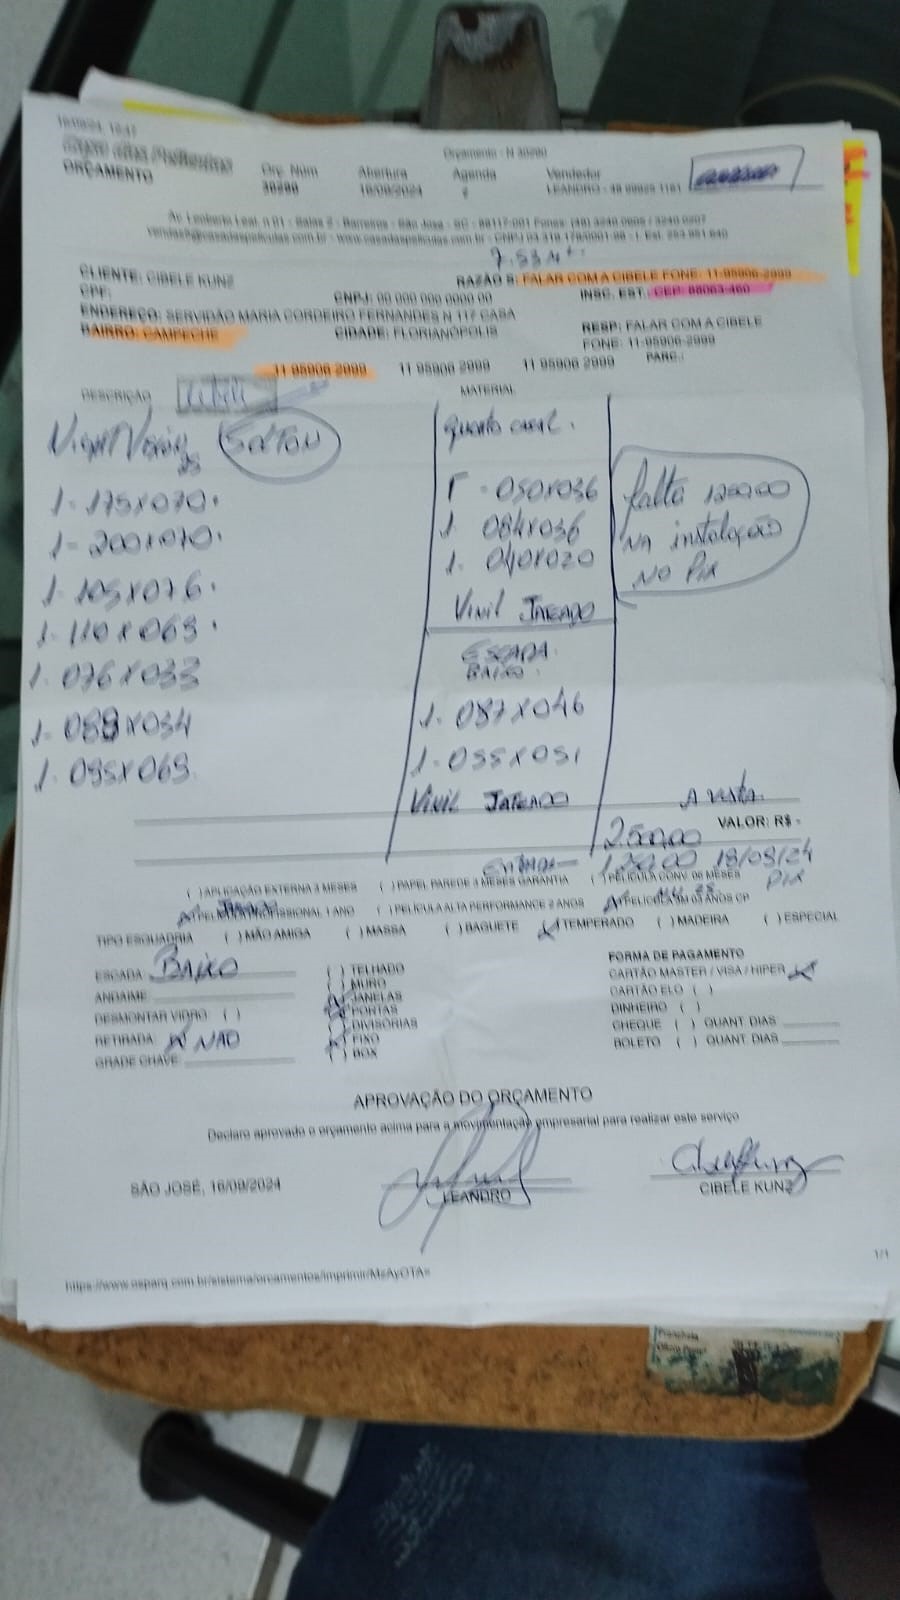 ORÇAMENTO Orç. Núm Abertura Agenda Vendedor
Orçamento - N 30280
30280 16/09/2024 LEANDRO - 48
Av. Leoberto Leal, n 01 - Salas 2 - Barreiros - São José - SC - 88117-001 Fones: (48) 3240 0606 / 3240 0207
CLIENTE: CIBELE KUNZ RAZÃO S: FALAR COM A CIBELE FONE: 11-95906-2999
CPF: CNPJ: 00 000 000 0000 00 INSC. EST. CEP: 88063-460
ENDEREÇO: SERVIDÃO MARIA CORDEIRO FERNANDES N 117 CASA RESP: FALAR COM A CIBELE
BAIRRO: CAMPECHE CIDADE: FLORIANÓPOLIS FONE: 11-95906-2999
11 95906 2999 11 95906 2999 11 95906 2999 PARC.:
DESCRIÇÃO MATERIAL
quarto casal.
1- 175x070.
1- 200x070.
1. 105x076.
1- 110x069.
1. 076x033
1- 088x034
1. 095x069.
1 - 050x036
1. 084x036
1. 040x020
Vinil JATEADO
ESCADA
BAIXO.
1. 087x046
1- 055x051
Vinil JATEADO
falta 1250,00
NA instalação
NO Pix
A vista.
VALOR: R$ -
2500,00
Entrada - 1250,00 18/09/24
Pix
( ) APLICAÇÃO EXTERNA 3 MESES ( ) PAPEL PAREDE 3 MESES GARANTIA ( ) PELÍCULA CONV 06 MESES
PROFISSIONAL 1 ANO ( ) PELÍCULA ALTA PERFORMANCE 2 ANOS PELÍCULA 3M 03 ANOS CP
TIPO ESQUADRIA ( ) MÃO AMIGA ( ) MASSA ( ) BAGUETE (X) TEMPERADO ( ) MADEIRA ( ) ESPECIAL
ESCADA: BAIXO
ANDAIME:
DESMONTAR VIDRO ( )
RETIRADA: X NÃO
GRADE CHAVE:
( ) TELHADO
( ) MURO
(X) JANELAS
(X) PORTAS
( ) DIVISÓRIAS
(X) FIXO
( ) BOX
FORMA DE PAGAMENTO
CARTÃO MASTER / VISA / HIPER (X)
CARTÃO ELO ( )
DINHEIRO ( )
CHEQUE ( ) QUANT DIAS
BOLETO ( ) QUANT DIAS
APROVAÇÃO DO ORÇAMENTO
Declaro aprovado o orçamento acima para a movimentação empresarial para realizar este serviço
SÃO JOSÉ, 16/09/2024 LEANDRO CIBELE KUNZ
1/1